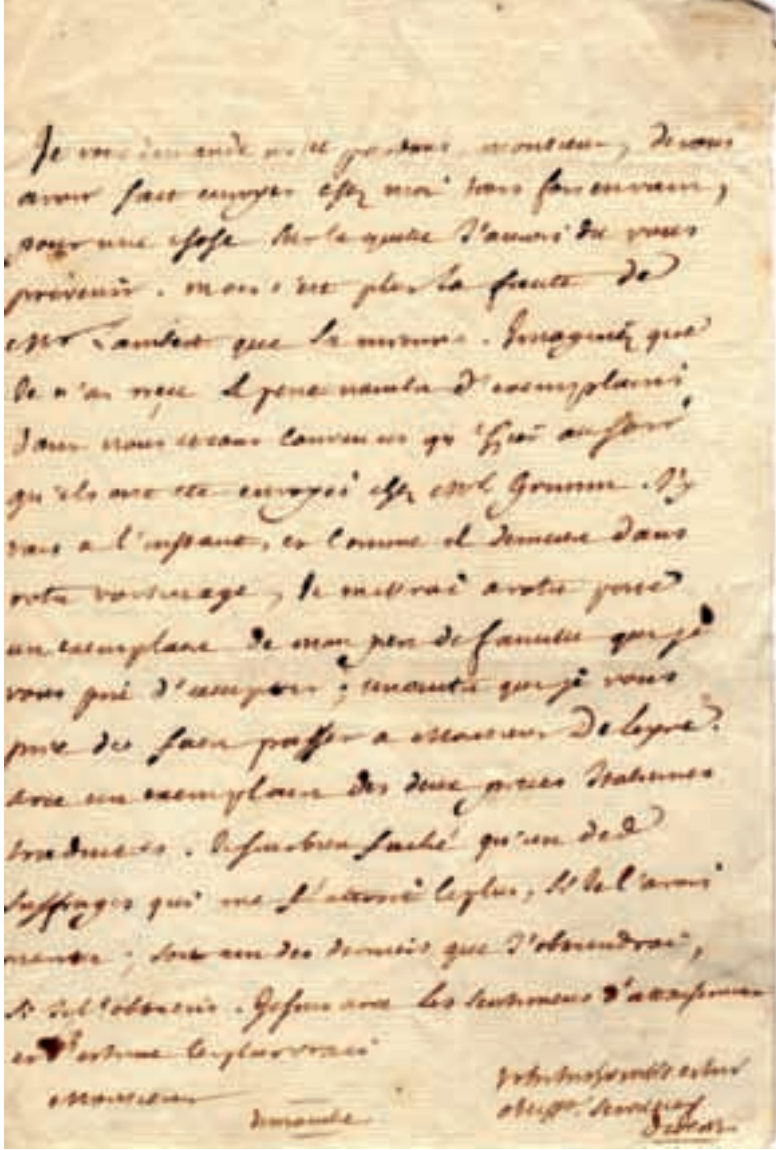 Je vous demande mille pardons, monsieur, de vous
avoir fait envoyer chez moi trois fois en vain,
pour une chose sur laquelle J'aurois du vous
prévenir. mais c'est plus la faute de
Mr Lambert que la mienne. Imaginéz que
Je n'ai reçu le petit nombre d'exemplaires
dont nous etions convenus qu'hier au soir
qu'ils ont eté envoyés chez Mr. Grimm. J'y
vais a l'instant, et comme il demeure dans
votre voisinage, Je mettrai a votre porte
un exemplaire de mon pere de famille que je
vous prie d'accepter; un autre que je vous
prie de faire passer a Monsieur Deleyre.
avec un exemplaire des deux pieces Italiennes
traduites. Je suis bien faché qu'un des
suffrages qui me flatteroit le plus, si Je l'avois
merité, soit un des derniers que J'obtiendrai,
si Je l'obtiens. Je suis avec les sentiments d'attachement
et d'estime les plus vrais
Monsieur
votre tres humble et tres
obeisst. serviteur
Diderot
dimanche